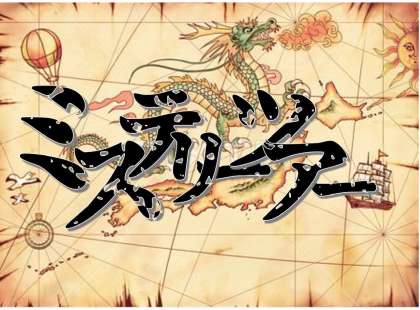 ミステリーツアー